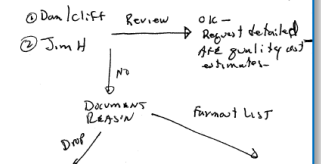 ① Dan/Cliff
Review
OK -
Request detailed
AFE quality cost
estimates -
② Jim H
NO
DOCUMENT
REASON
Format LIST
DROP